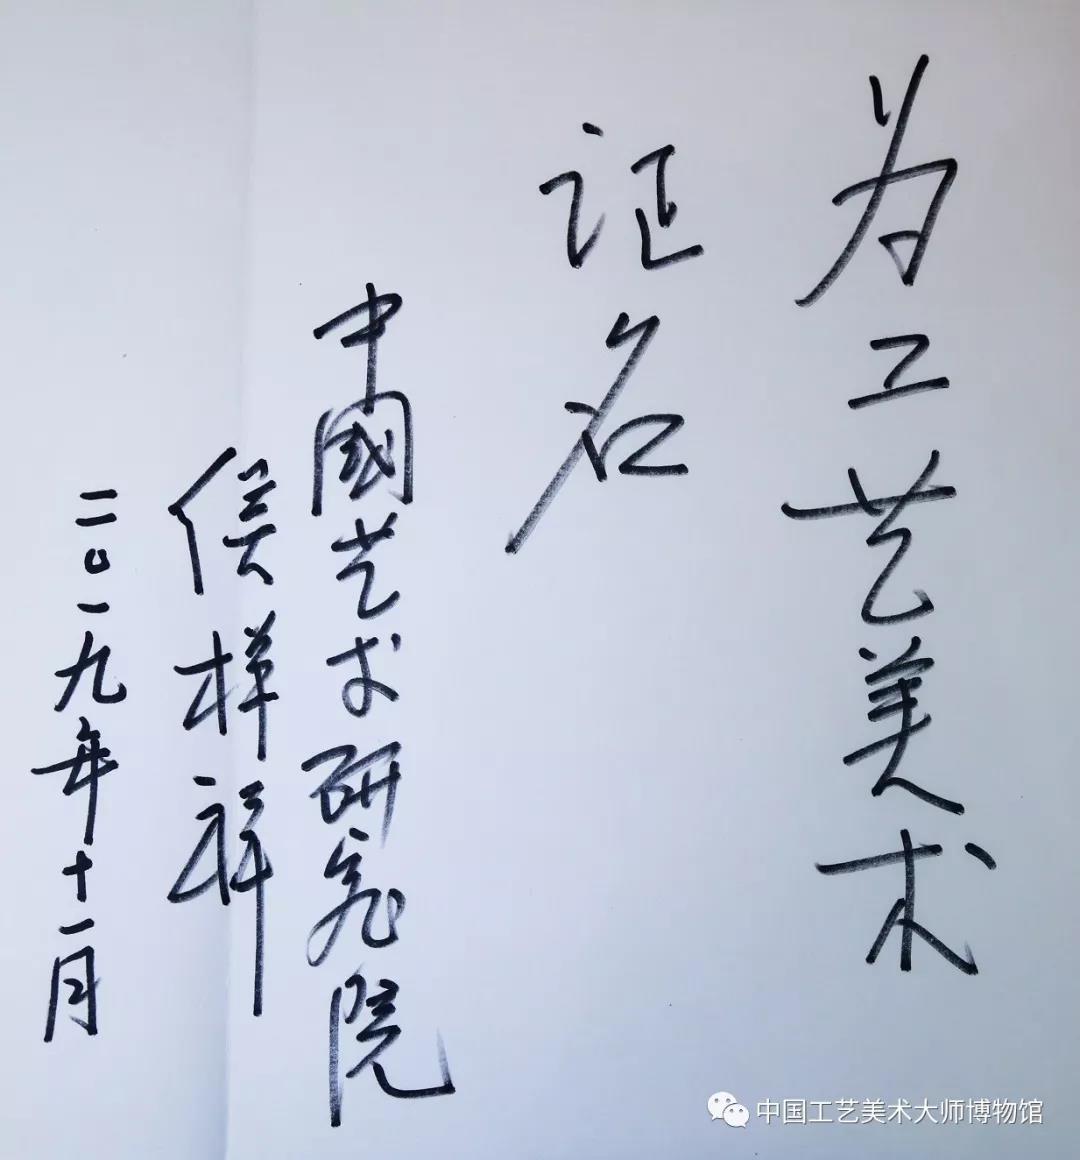 为工艺美术
证名
中國艺术研究院
侯样祥
二〇一九年十一月
中国工艺美术大师博物馆